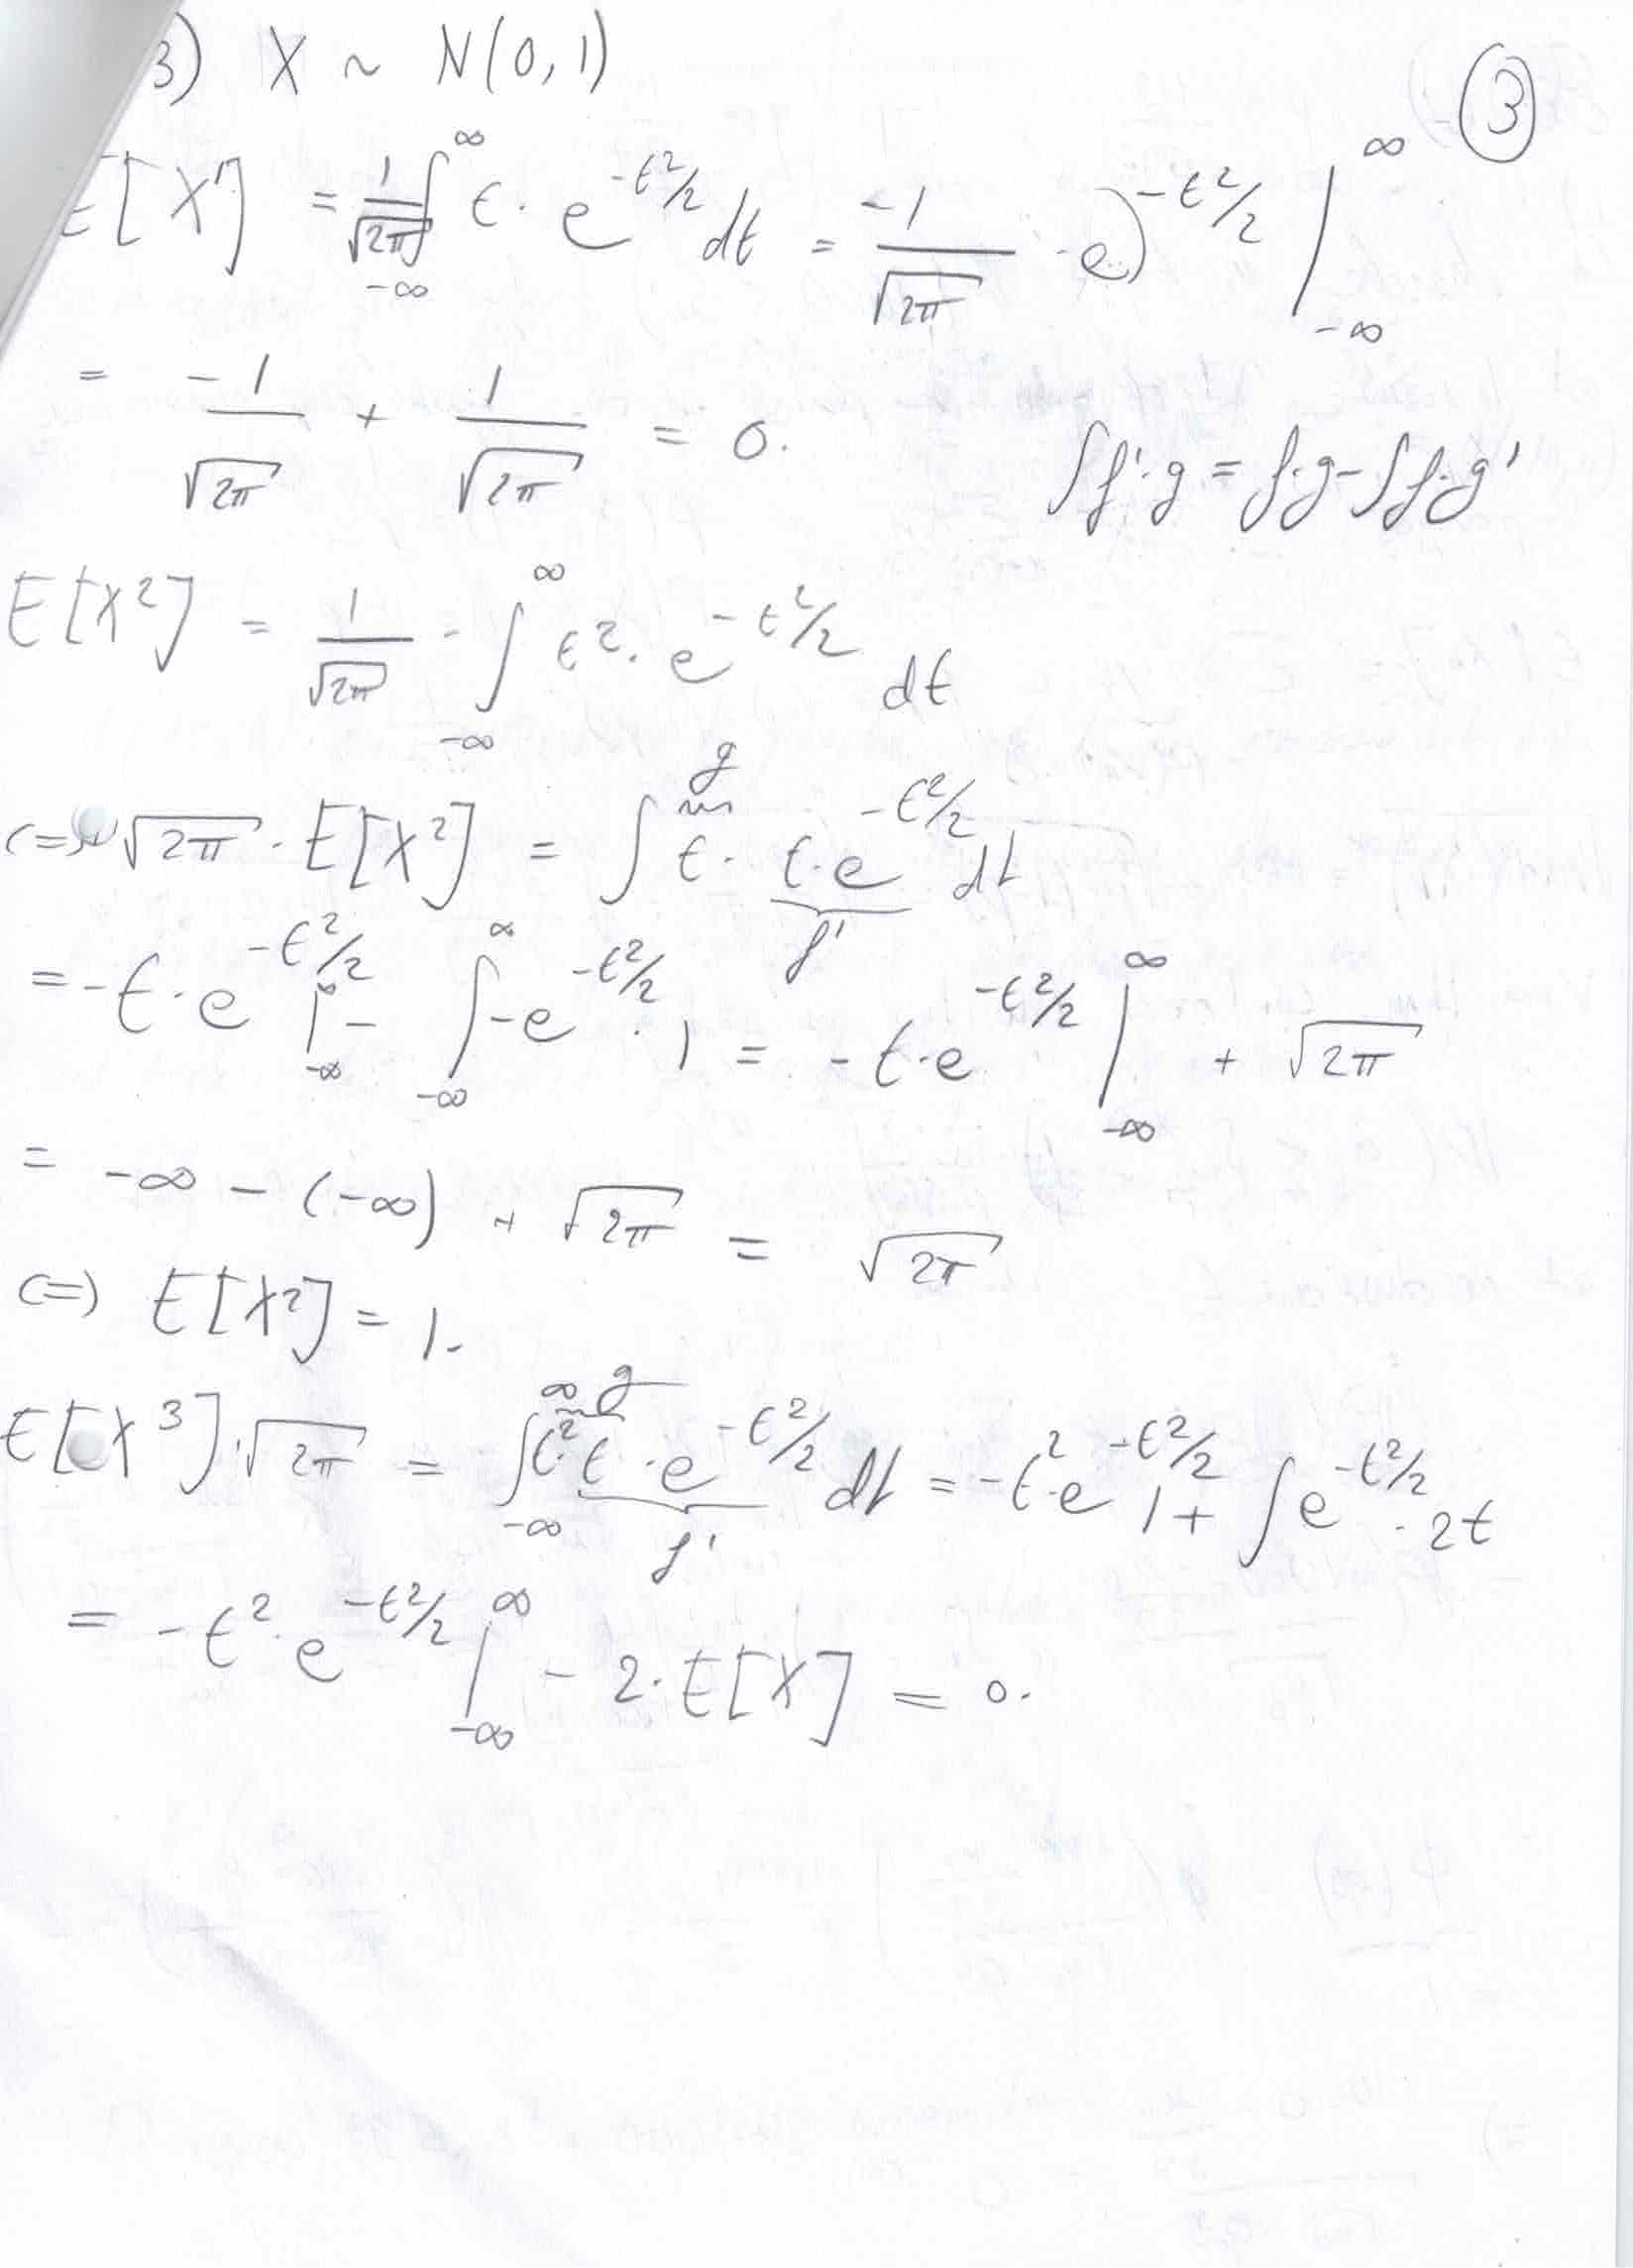 3) X ~ N(0,1) ③
E[X¹] = 1/√2π ∫_{-∞}^{∞} t · e^{-t²/2} dt = -1/√2π · e^{-t²/2} |_{-∞}^{∞}
= -1/√2π + 1/√2π = 0.
∫f'·g = f·g - ∫f·g'
E[X²] = 1/√2π · ∫_{-∞}^{∞} t² · e^{-t²/2} dt
(=) √2π · E[X²] = ∫ t · t·e^{-t²/2} dt
g
f'
= -t·e^{-t²/2} |_{-∞}^{∞} - ∫_{-∞}^{∞} -e^{-t²/2} · 1 = -t·e^{-t²/2} |_{-∞}^{∞} + √2π
= -∞ - (-∞) + √2π = √2π
(=) E[X²] = 1.
E[X³]·√2π = ∫_{-∞}^{∞} t²·t·e^{-t²/2} dt = -t²·e^{-t²/2} | + ∫ e^{-t²/2} · 2t
g
f'
= -t²·e^{-t²/2} |_{-∞}^{∞} - 2·E[X] = 0.